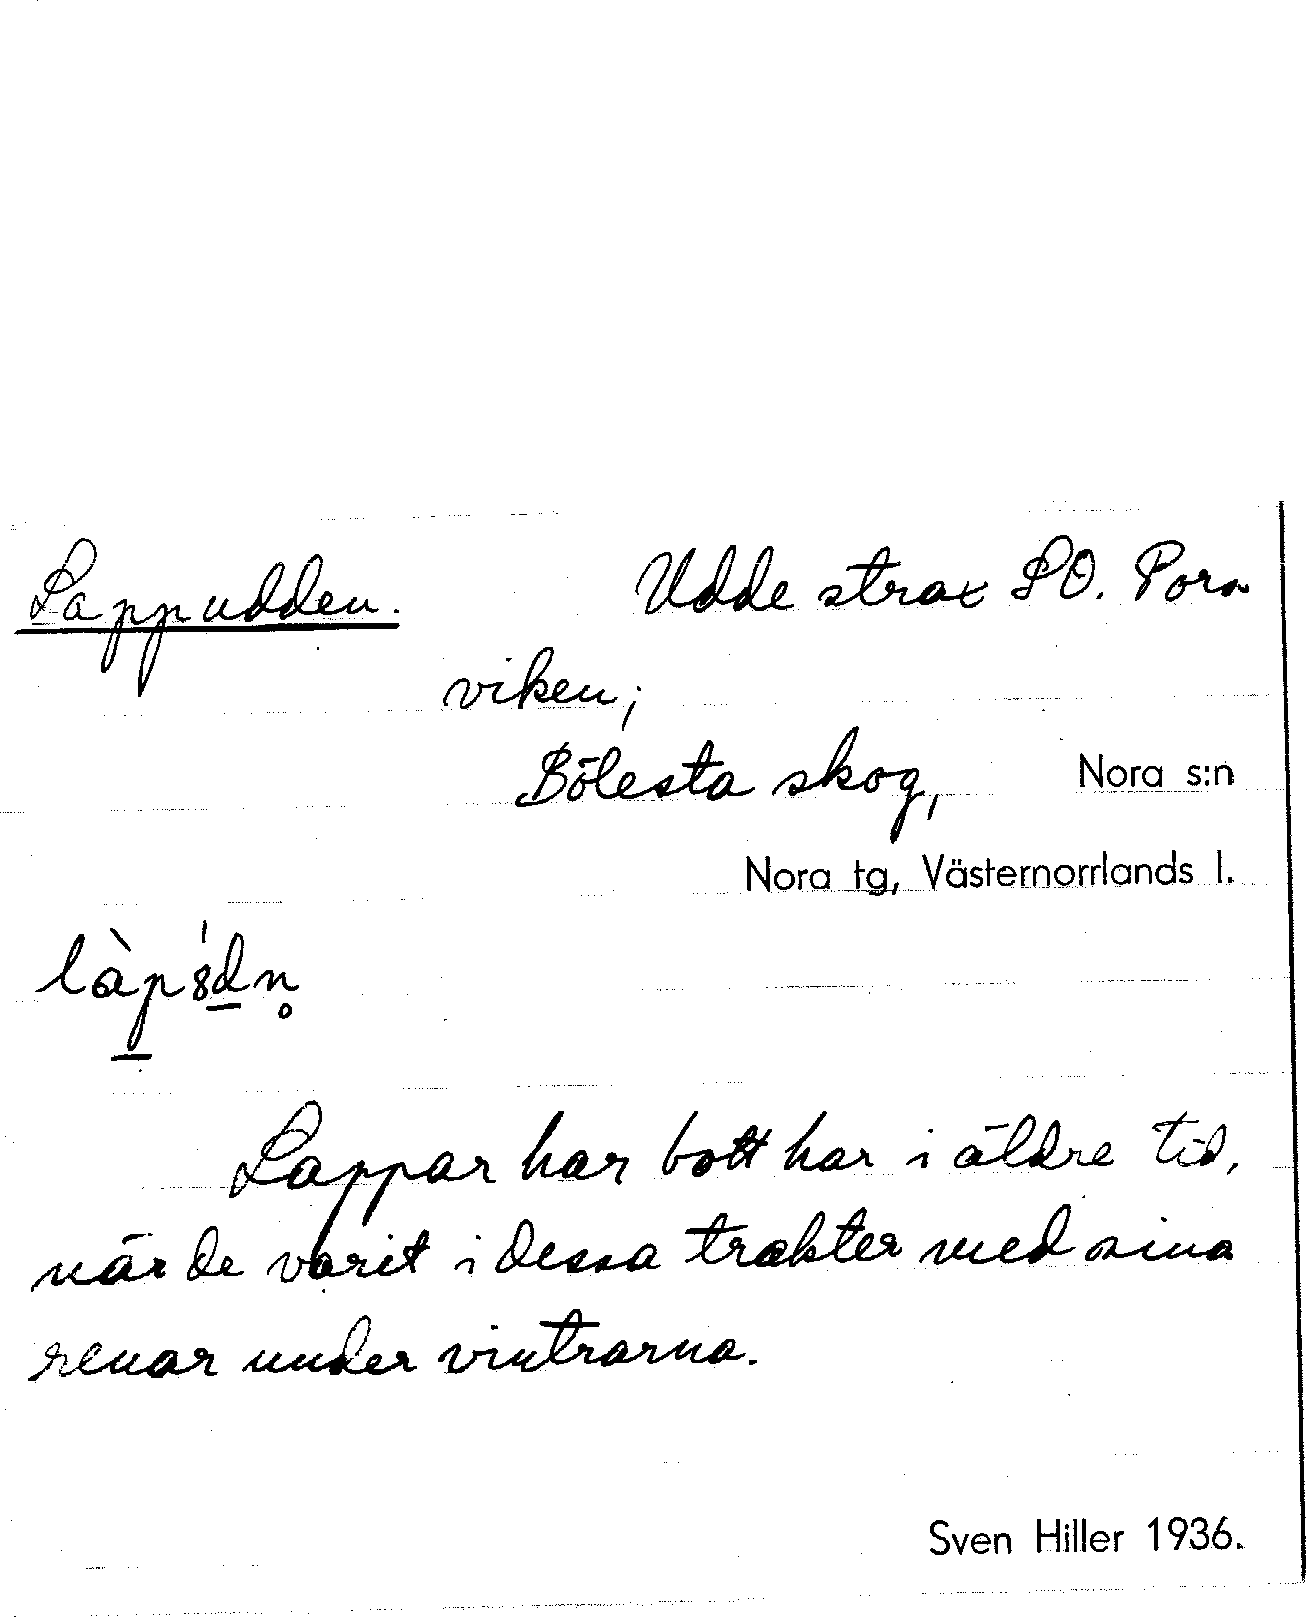 Lappudden. Udde strax SO. Pora
viken;
Bölesta skog, Nora s:n
Nora tg, Västernorrlands l.
Lappar har bott här i äldre tid,
när de varit i dessa trakter med sina
renar under vintrarna.
Sven Hiller 1936.